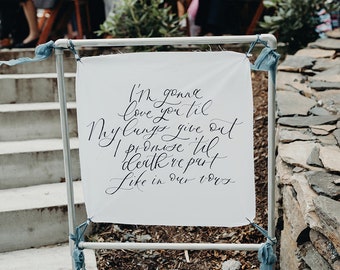 I'm gonna
love you til
My lungs give out
I promise 'til
death we part
Like in our vows